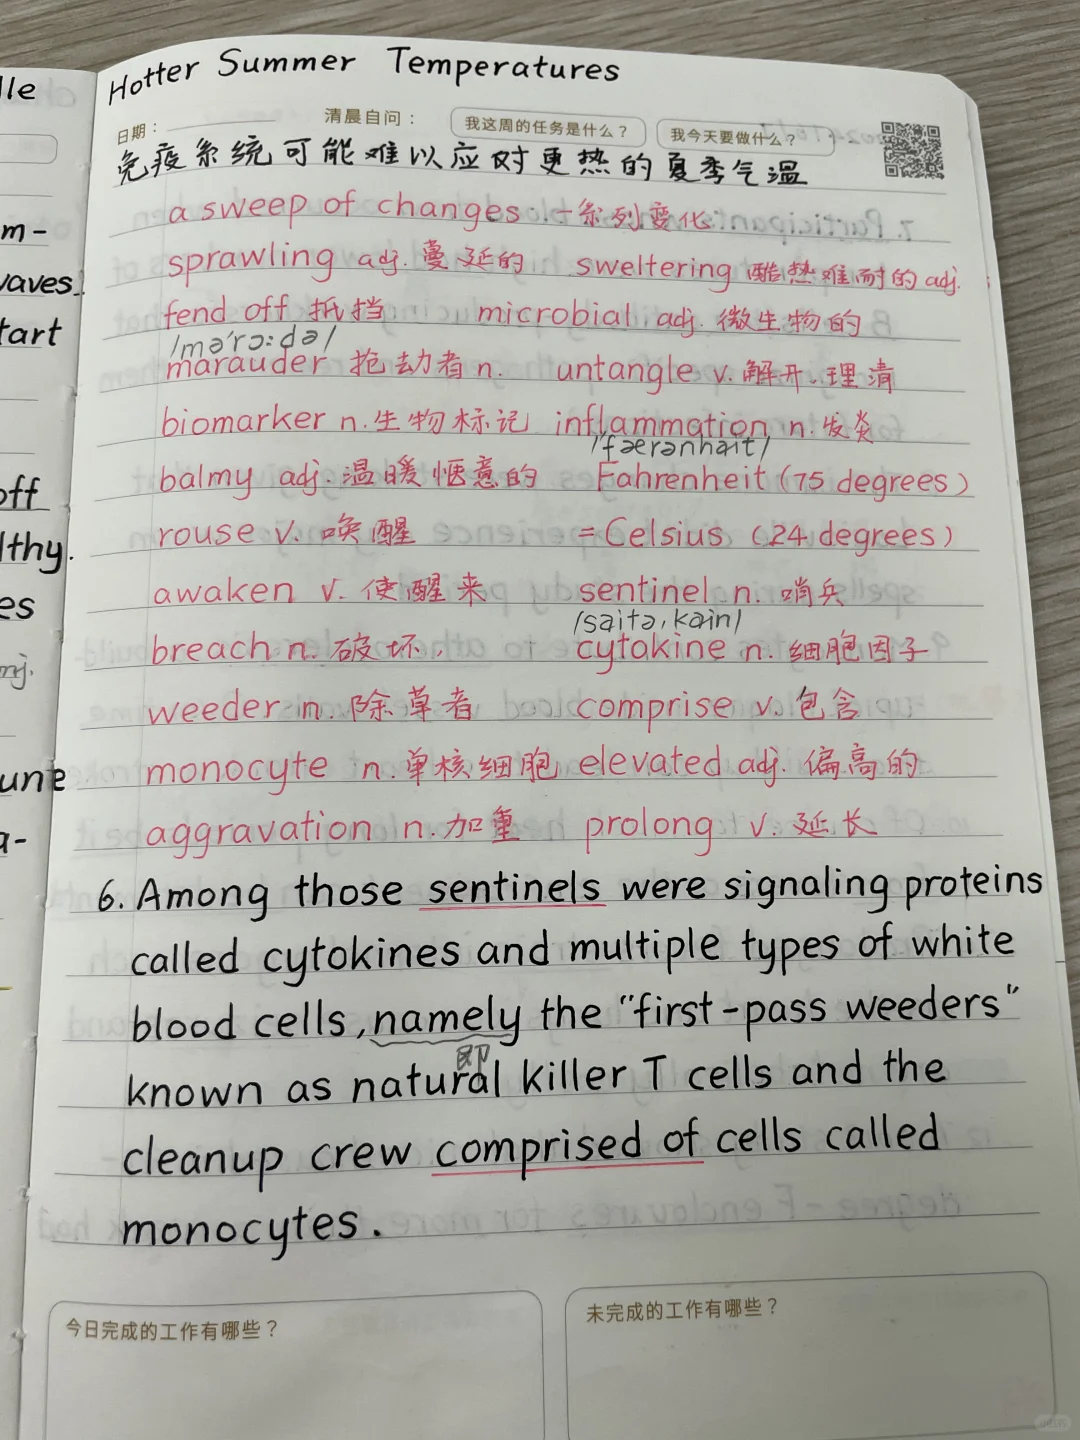 Hotter Summer Temperatures
日期：
清晨自问：
我这周的任务是什么？
我今天要做什么？
免疫系统可能难以应对更热的夏季气温
a sweep of changes 一系列变化
sprawling adj. 蔓延的 sweltering 酷热难耐的 adj.
fend off 抵挡 microbial adj. 微生物的
/məˈrɔːdə/
marauder 抢劫者 n. untangle v. 解开、理清
biomarker n. 生物标记 inflammation n. 发炎
/ˈfærənhait/
balmy adj. 温暖惬意的 Fahrenheit (75 degrees)
rouse v. 唤醒 = Celsius (24 degrees)
awaken v. 使醒来 sentinel n. 哨兵
/saitə,kain/
breach n. 破坏. cytokine n. 细胞因子
weeder n. 除草者 comprise v. 包含
monocyte n. 单核细胞 elevated adj. 偏高的
aggravation n. 加重 prolong v. 延长
6. Among those sentinels were signaling proteins
called cytokines and multiple types of white
blood cells, namely the "first-pass weeders"
即
known as natural killer T cells and the
cleanup crew comprised of cells called
monocytes.
今日完成的工作有哪些？
未完成的工作有哪些？
lle
m-
waves.
tart
off
lthy.
es
mj.
une
a-